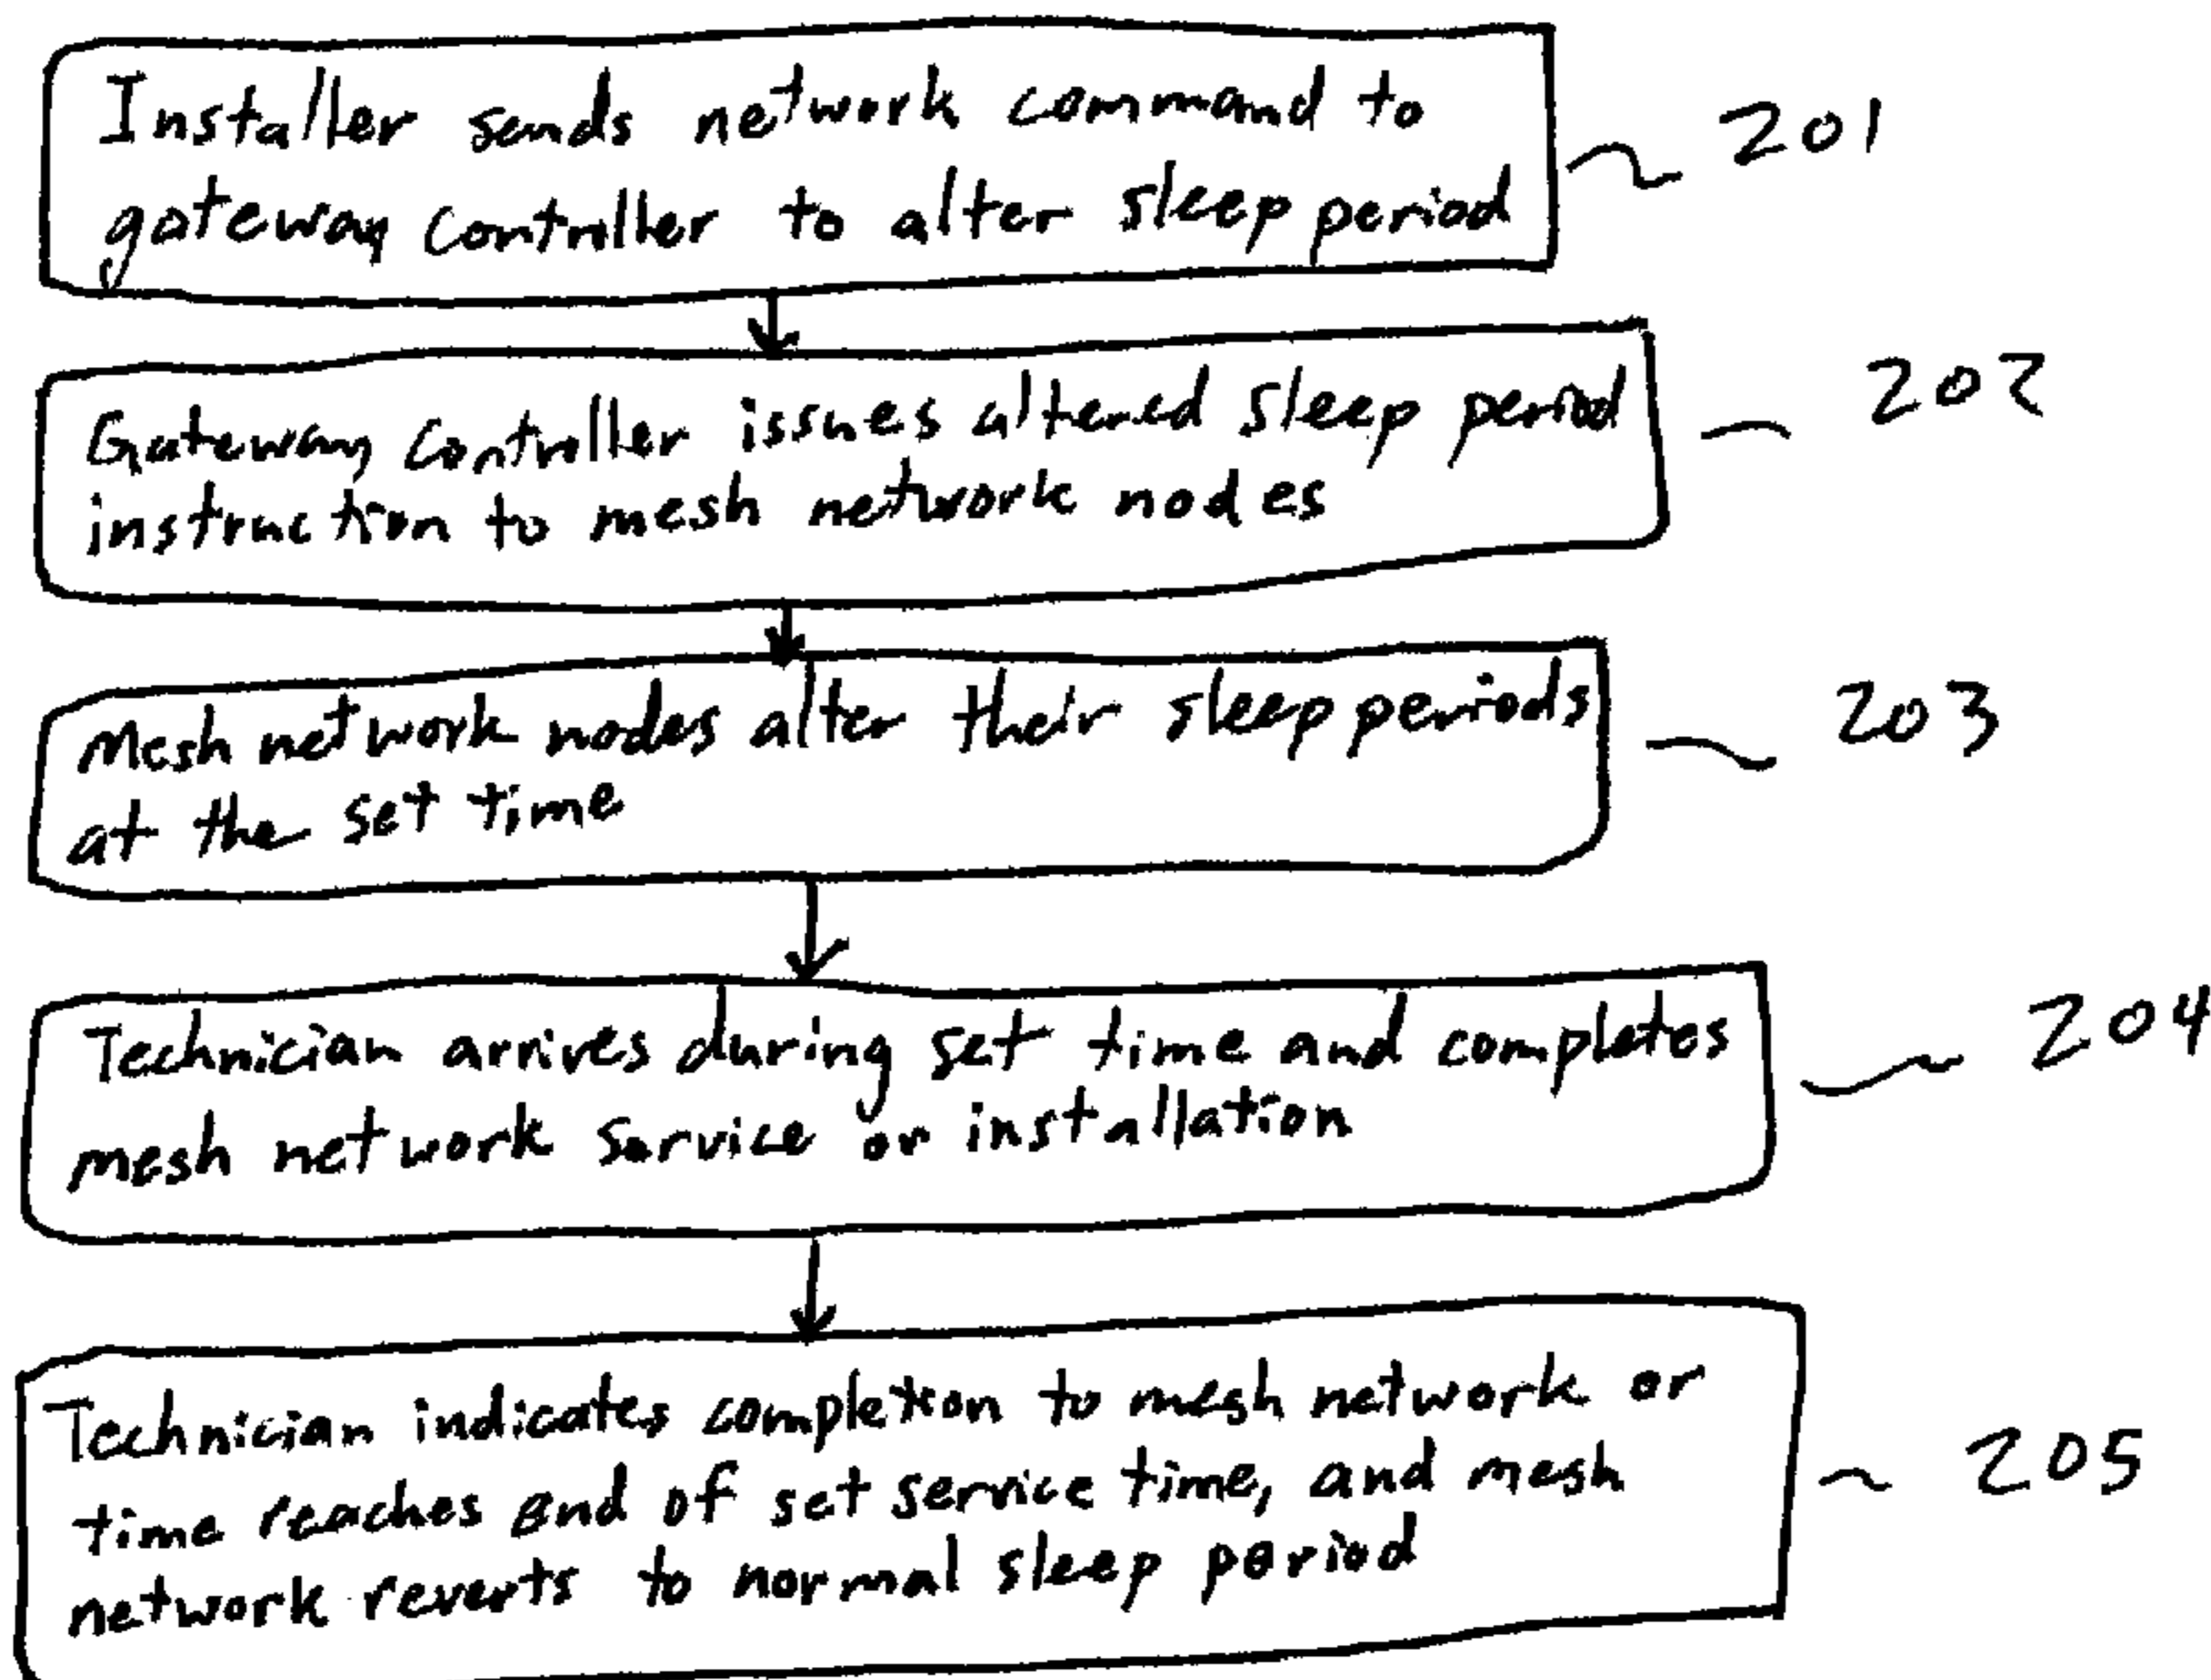 Installer sends network command to
gateway controller to alter sleep period
201
Gateway controller issues altered sleep period
instruction to mesh network nodes
202
Mesh network nodes alter their sleep periods
at the set time
203
Technician arrives during set time and completes
mesh network service or installation
204
Technician indicates completion to mesh network or
time reaches end of set service time, and mesh
network reverts to normal sleep period
205